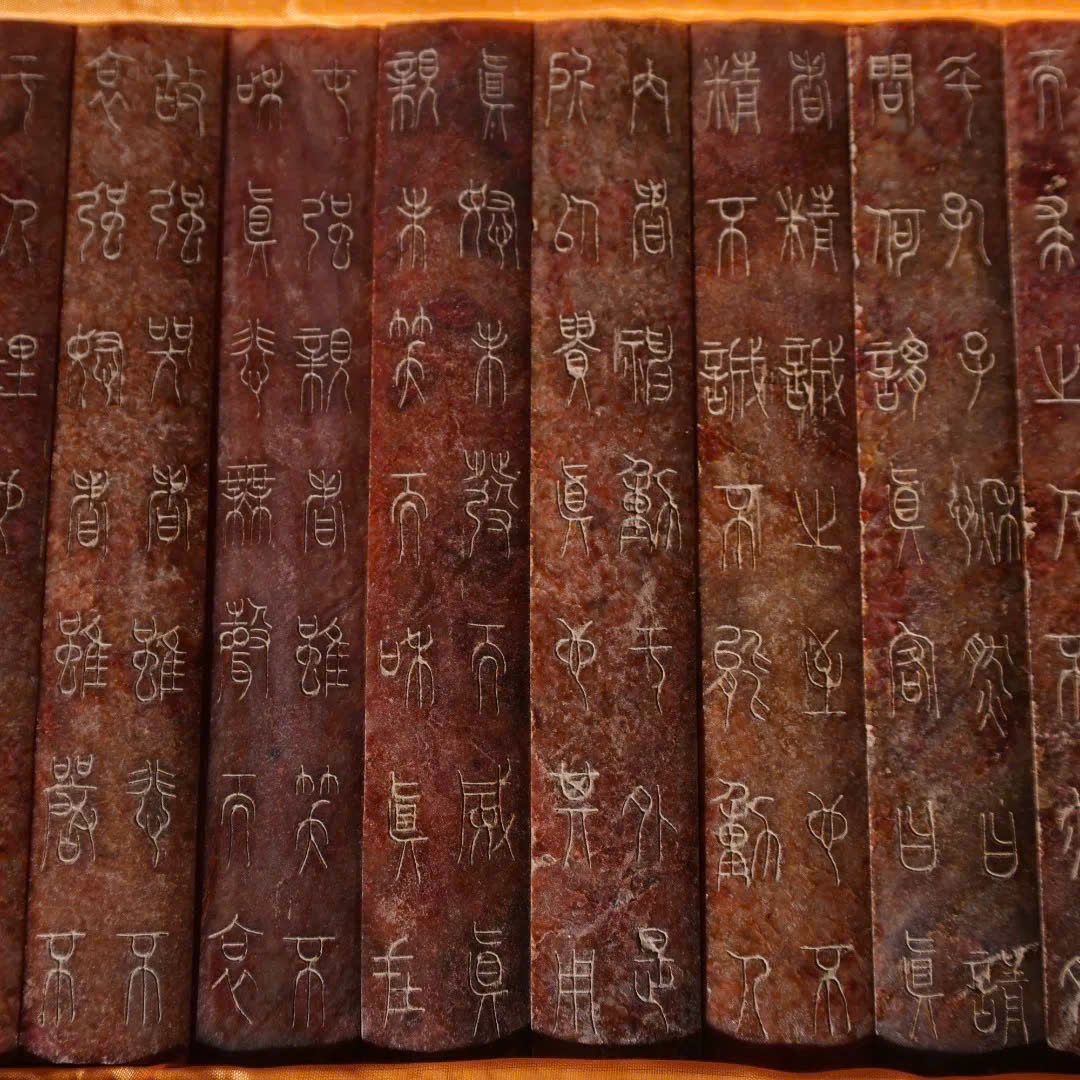 乎孔子愀然曰請
問何謂眞客曰眞
者精誠之至也不
精不誠不能動人
內者神動于外是
所以貴眞也其用
眞怒未發而威眞
親未笑而和眞在
强親者雖笑不
和眞悲無聲而哀
故强哭者雖悲不
哀强怒者雖嚴不
于人理也